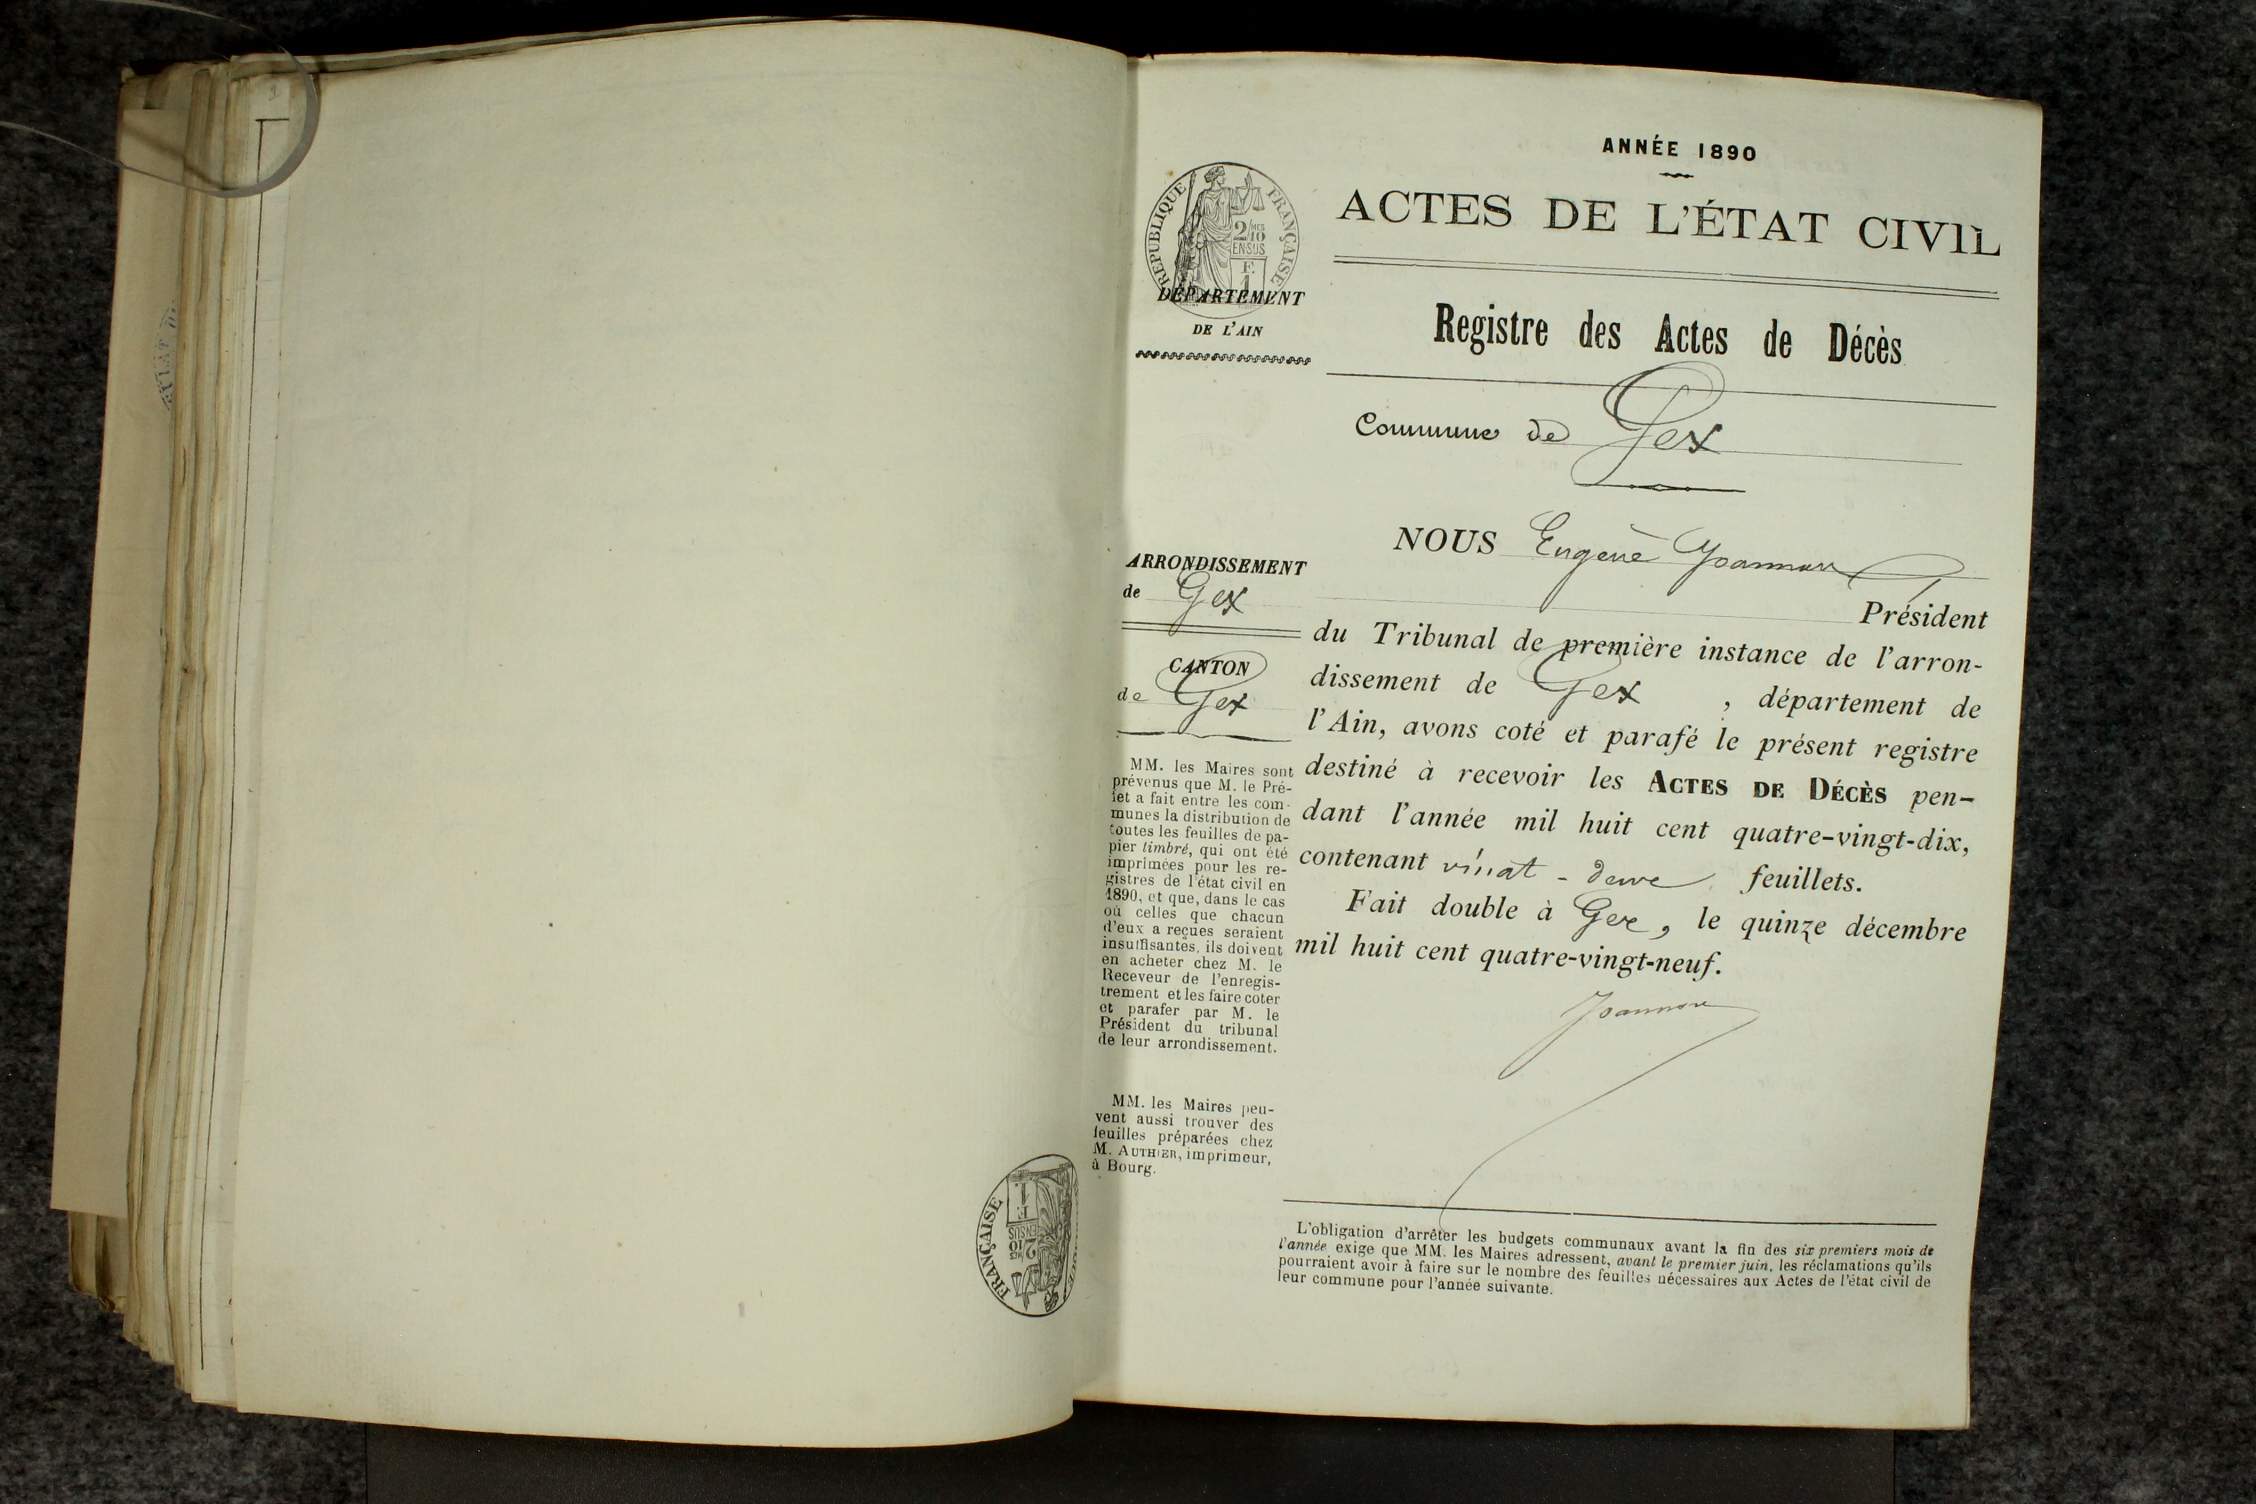 ANNÉE 1890
ACTES DE L'ÉTAT CIVIL
RÉPUBLIQUE FRANÇAISE
2/10 MES
EN SUS
F. 1
DÉPARTEMENT
DE L'AIN
Registre des Actes de Décès
Commune de Gex
ARRONDISSEMENT
de Gex
CANTON
de Gex
MM. les Maires sont
prévenus que M. le Pré-
fet a fait entre les com-
munes la distribution de
toutes les feuilles de pa-
pier timbré, qui ont été
imprimées pour les re-
gistres de l'état civil en
1890, et que, dans le cas
où celles que chacun
d'eux a reçues seraient
insuffisantes, ils doivent
en acheter chez M. le
Receveur de l'enregis-
trement et les faire coter
et parafer par M. le
Président du tribunal
de leur arrondissement.
MM. les Maires peu-
vent aussi trouver des
feuilles préparées chez
M. AUTHIER, imprimeur,
à Bourg.
NOUS Eugène Joannon
Président
du Tribunal de première instance de l'arron-
dissement de Gex, département de
l'Ain, avons coté et parafé le présent registre
destiné à recevoir les ACTES DE DÉCÈS pen-
dant l'année mil huit cent quatre-vingt-dix,
contenant vingt-deux feuillets.
Fait double à Gex, le quinze décembre
mil huit cent quatre-vingt-neuf.
Joannon
L'obligation d'arrêter les budgets communaux avant la fin des six premiers mois de
l'année exige que MM. les Maires adressent, avant le premier juin, les réclamations qu'ils
pourraient avoir à faire sur le nombre des feuilles nécessaires aux Actes de l'état civil de
leur commune pour l'année suivante.
FRANÇAISE
2/10 MES
EN SUS
F. 1